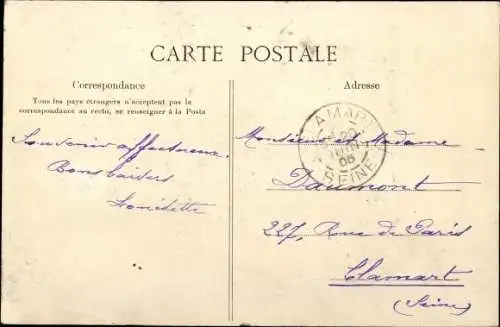 CARTE POSTALE
Correspondance
Tous les pays étrangers n'acceptent pas la
correspondance au recto, se renseigner à la Poste
Souvenir affectueux
Bons baisers
Adresse
CLAMART
20
JUIN
06
SEINE
Monsieur et Madame
Daumont
227, Rue de Paris
Clamart
(Seine)